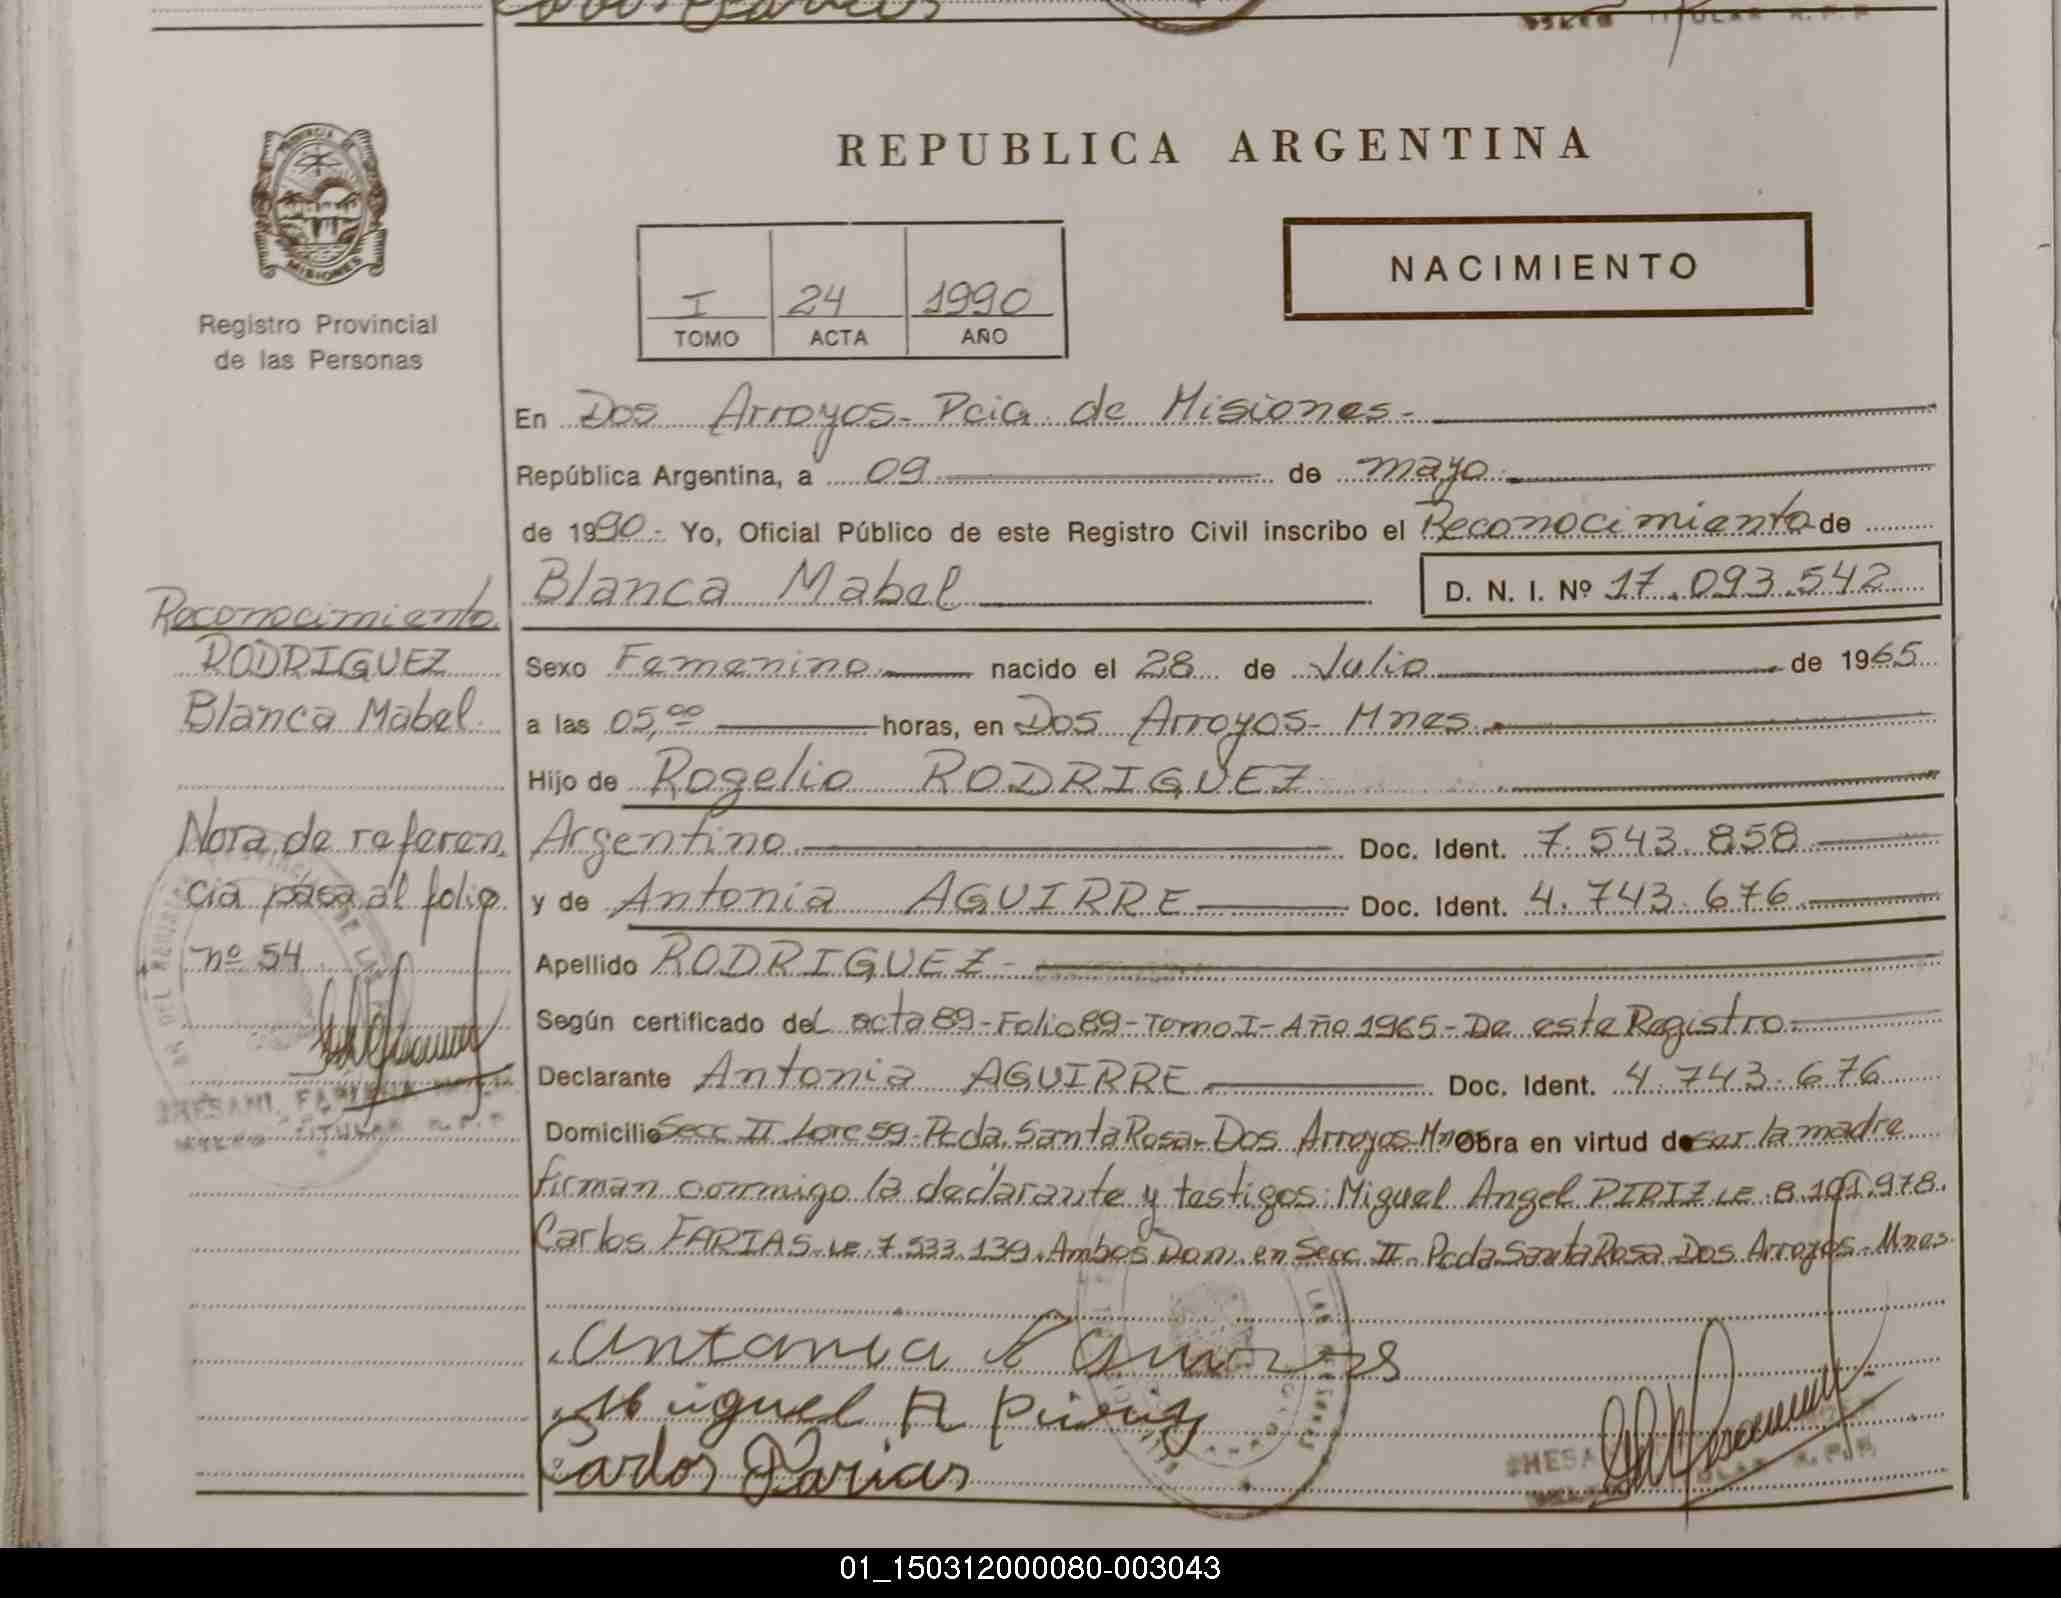 REPUBLICA ARGENTINA
NACIMIENTO
I 24 1990
TOMO ACTA AÑO
PROVINCIA DE
MISIONES
Registro Provincial
de las Personas
En Dos Arroyos - Pcia de Misiones -
República Argentina, a 09 de mayo
de 1990 - Yo, Oficial Público de este Registro Civil inscribo el Reconocimiento de
Blanca Mabel D. N. I. Nº 17.093.542
Reconocimiento
RODRIGUEZ
Blanca Mabel
Nota de referen
cia pasa al folio
nº 54
Sexo Femenino nacido el 28 de Julio de 1965
a las 05,00 horas, en Dos Arroyos - Mnes
Hijo de Rogelio RODRIGUEZ
Argentino Doc. Ident. 7.543.858
y de Antonia AGUIRRE Doc. Ident. 4.743.676
Apellido RODRIGUEZ -
Según certificado del acta 89 - Folio 89 - Tomo I - Año 1965 - De este Registro
Declarante Antonia AGUIRRE Doc. Ident. 4.743.676
Domicilio Secc II Lote 59 - Pcda. Santa Rosa - Dos Arroyos - Mnes Obra en virtud de ser la madre
firman conmigo la declarante y testigos: Miguel Angel PIRIZ LE 8.191.978.
Carlos FARIAS LE 7.533.139. Ambos Dom. en Secc II - Pcda Santa Rosa Dos Arroyos - Mnes
Miguel A Piriz
Carlos Farias
01_150312000080-003043